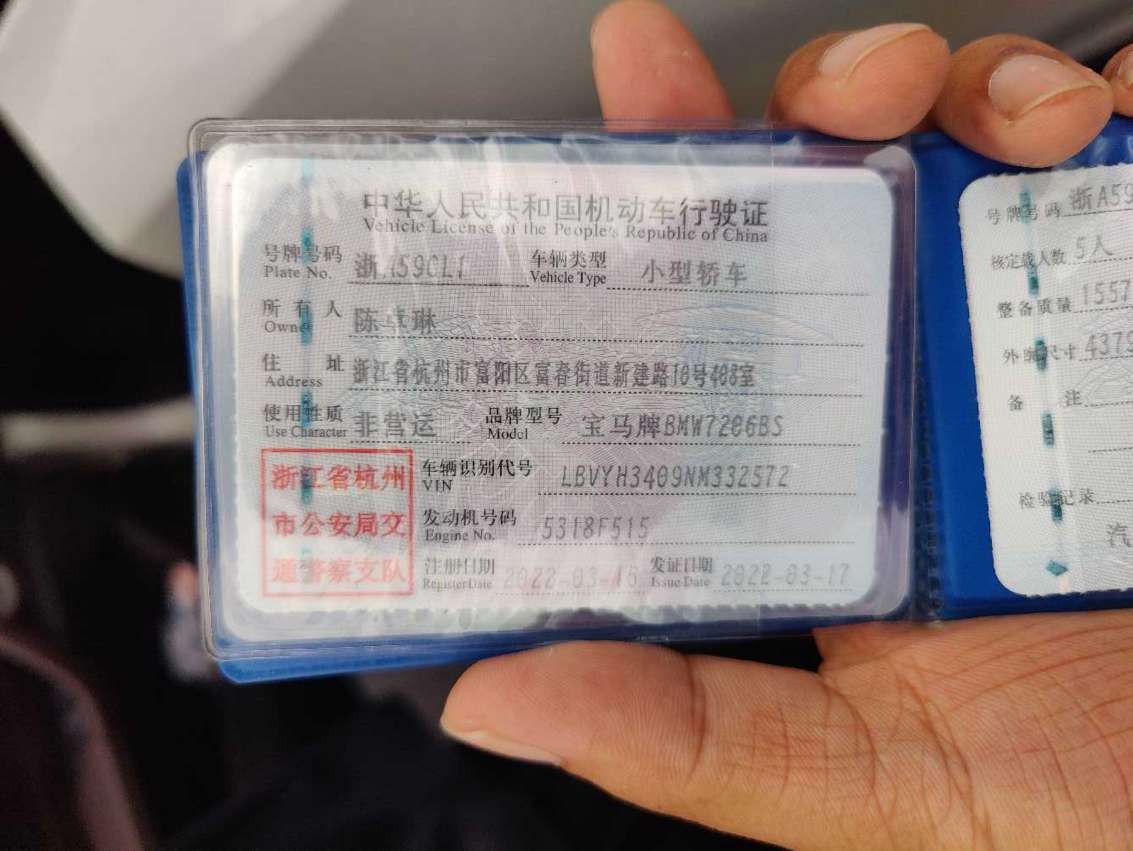 中华人民共和国机动车行驶证
Vehicle License of the People's Republic of China
号牌号码 浙A59CL1 车辆类型 小型轿车
Plate No. Vehicle Type
所有人 陈卓琳
Owner
住址 浙江省杭州市富阳区富春街道新建路10号408室
Address
使用性质 非营运 品牌型号 宝马牌BMW7206BS
Use Character Model
浙江省杭州
市公安局交
通警察支队
车辆识别代号 LBVYH3409NM332572
VIN
发动机号码 5318F515
Engine No.
注册日期 2022-03-16 发证日期 2022-03-17
Register Date Issue Date
号牌号码 浙A59
核定载人数 5人
整备质量 1557
外廓尺寸 4379
备注
检验记录
汽